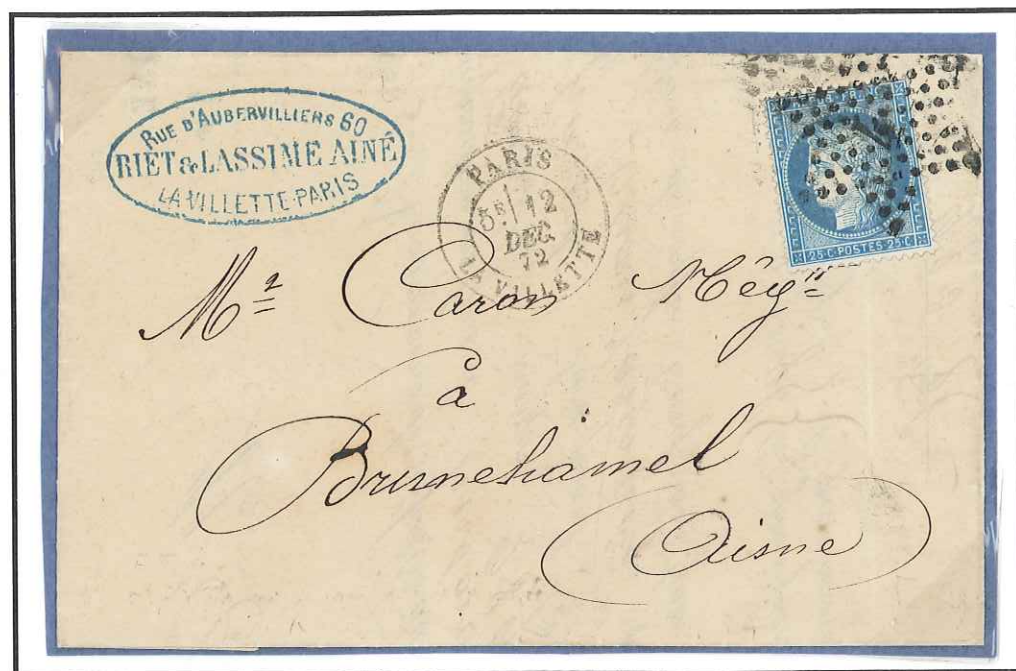 RUE D'AUBERVILLIERS 60
BIET & LASSIME AINÉ
LA VILLETTE-PARIS
PARIS
5E 12
DEC.
72
LA VILLETTE
25 C. POSTES 25 C.
Mr Caron Négt
à
Brunehamel
(Aisne)